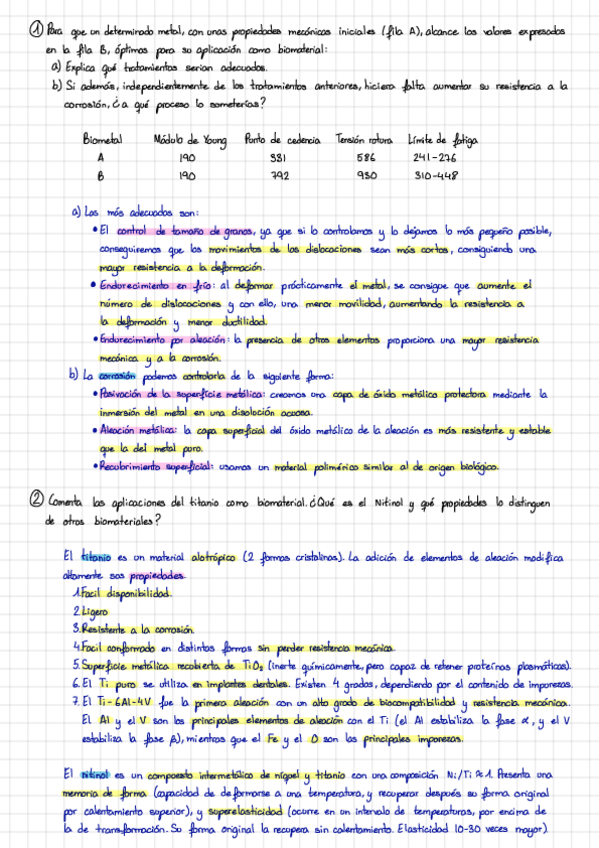 ① Para que un determinado metal, con unas propiedades mecánicas iniciales (fila A), alcance los valores expresados
en la fila B, óptimos para su aplicación como biomaterial:
a) Explica qué tratamientos serían adecuados.
b) Si además, independientemente de los tratamientos anteriores, hiciera falta aumentar su resistencia a la
corrosión, ¿a qué proceso lo someterías?
Biometal Módulo de Young Punto de cedencia Tensión rotura Límite de fatiga
A 190 331 586 241-276
B 190 792 930 310-448
a) Los más adecuados son:
• El control de tamaño de granos, ya que si lo controlamos y lo dejamos lo más pequeño posible,
conseguiremos que los movimientos de las dislocaciones sean más cortos, consiguiendo una
mayor resistencia a la deformación.
• Endurecimiento en frío: al deformar prácticamente el metal, se consigue que aumente el
número de dislocaciones y con ello, una menor movilidad, aumentando la resistencia a
la deformación y menor ductilidad.
• Endurecimiento por aleación: la presencia de otros elementos proporciona una mayor resistencia
mecánica y a la corrosión.
b) La corrosión podemos controlarla de la siguiente forma:
• Pasivación de la superficie metálica: creamos una capa de óxido metálico protectora mediante la
inmersión del metal en una disolución acuosa.
• Aleación metálica: la capa superficial del óxido metálico de la aleación es más resistente y estable
que la del metal puro.
• Recubrimiento superficial: usamos un material polimérico similar al de origen biológico.
② Comenta las aplicaciones del titanio como biomaterial. ¿Qué es el Nitinol y qué propiedades lo distinguen
de otros biomateriales?
El titanio es un material alotrópico (2 formas cristalinas). La adición de elementos de aleación modifica
altamente sus propiedades.
1. Facil disponibilidad.
2. Ligero
3. Resistente a la corrosión.
4. Facil conformado en distintas formas sin perder resistencia mecánica.
5. Superficie metálica recobierta de TiO₂ (inerte químicamente, pero capaz de retener proteínas plasmáticas).
6. El Ti puro se utiliza en implantes dentales. Existen 4 grados, dependiendo por el contenido de impurezas.
7. El Ti-6Al-4V fue la primera aleación con un alto grado de biocompatibilidad y resistencia mecánica.
El Al y el V son los principales elementos de aleación con el Ti (el Al estabiliza la fase α, y el V
estabiliza la fase β), mientras que el Fe y el O son las principales impurezas.
El nitinol es un compuesto intermetálico de níquel y titanio con una composición Ni/Ti ≈ 1. Presenta una
memoria de forma (capacidad de deformarse a una temperatura, y recuperar después su forma original
por calentamiento superior), y superelasticidad (ocurre en un intervalo de temperaturas, por encima de
la de transformación. Su forma original la recupera sin calentamiento. Elasticidad 10-30 veces mayor)